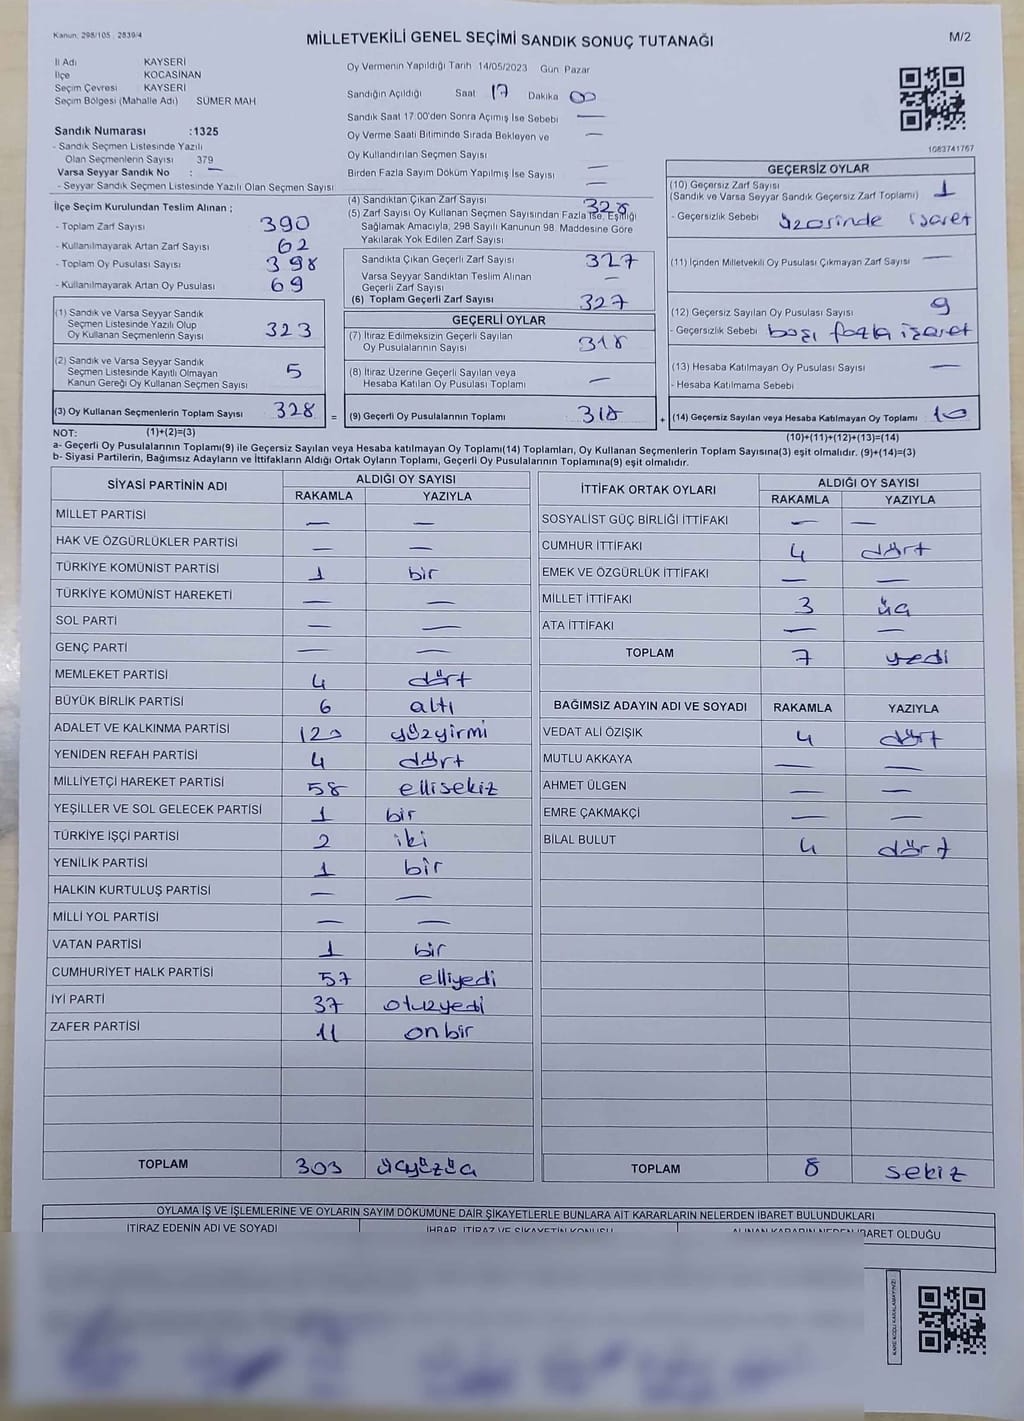 Kanun, 298/105 , 2839/4
MİLLETVEKİLİ GENEL SEÇİMİ SANDIK SONUÇ TUTANAĞI
M/2
İl Adı KAYSERİ
İlçe KOCASİNAN
Seçim Çevresi KAYSERİ
Seçim Bölgesi (Mahalle Adı) SÜMER MAH
Sandık Numarası :1325
- Sandık Seçmen Listesinde Yazılı
Olan Seçmenlerin Sayısı 379
Varsa Seyyar Sandık No : —
- Seyyar Sandık Seçmen Listesinde Yazılı Olan Seçmen Sayısı —
Oy Vermenin Yapıldığı Tarih 14/05/2023 Gün Pazar
Sandığın Açıldığı Saat 17 Dakika 00
Sandık Saat 17:00'den Sonra Açımış İse Sebebi —
Oy Verme Saati Bitiminde Sırada Bekleyen ve —
Oy Kullandırılan Seçmen Sayısı
Birden Fazla Sayım Döküm Yapılmış İse Sayısı —
1083741767
İlçe Seçim Kurulundan Teslim Alınan ;
- Toplam Zarf Sayısı 390
- Kullanılmayarak Artan Zarf Sayısı 62
- Toplam Oy Pusulası Sayısı 398
- Kullanılmayarak Artan Oy Pusulası 69
(1) Sandık ve Varsa Seyyar Sandık
Seçmen Listesinde Yazılı Olup
Oy Kullanan Seçmenlerin Sayısı 323
(2) Sandık ve Varsa Seyyar Sandık
Seçmen Listesinde Kayıtlı Olmayan
Kanun Gereği Oy Kullanan Seçmen Sayısı 5
(3) Oy Kullanan Seçmenlerin Toplam Sayısı 328
(4) Sandıktan Çıkan Zarf Sayısı 328
(5) Zarf Sayısı Oy Kullanan Seçmen Sayısından Fazla İse, Eşitliği
Sağlamak Amacıyla, 298 Sayılı Kanunun 98. Maddesine Göre
Yakılarak Yok Edilen Zarf Sayısı
Sandıkta Çıkan Geçerli Zarf Sayısı 327
Varsa Seyyar Sandıktan Teslim Alınan
Geçerli Zarf Sayısı —
(6) Toplam Geçerli Zarf Sayısı 327
GEÇERLİ OYLAR
(7) İtiraz Edilmeksizin Geçerli Sayılan
Oy Pusulalarının Sayısı 318
(8) İtiraz Üzerine Geçerli Sayılan veya
Hesaba Katılan Oy Pusulası Toplamı —
= (9) Geçerli Oy Pusulalarının Toplamı 318
GEÇERSİZ OYLAR
(10) Geçersiz Zarf Sayısı 1
(Sandık ve Varsa Seyyar Sandık Geçersiz Zarf Toplamı)
- Geçersizlik Sebebi üzerinde işaret
(11) İçinden Milletvekili Oy Pusulası Çıkmayan Zarf Sayısı —
(12) Geçersiz Sayılan Oy Pusulası Sayısı 9
- Geçersizlik Sebebi boşı fazla işaret
(13) Hesaba Katılmayan Oy Pusulası Sayısı —
- Hesaba Katılmama Sebebi
+ (14) Geçersiz Sayılan veya Hesaba Katılmayan Oy Toplamı 10
NOT: (1)+(2)=(3) (10)+(11)+(12)+(13)=(14)
a- Geçerli Oy Pusulalarının Toplamı(9) ile Geçersiz Sayılan veya Hesaba katılmayan Oy Toplamı(14) Toplamları, Oy Kullanan Seçmenlerin Toplam Sayısına(3) eşit olmalıdır. (9)+(14)=(3)
b- Siyasi Partilerin, Bağımsız Adayların ve İttifakların Aldığı Ortak Oyların Toplamı, Geçerli Oy Pusulalarının Toplamına(9) eşit olmalıdır.
SİYASİ PARTİNİN ADI ALDIĞI OY SAYISI
RAKAMLA YAZIYLA
MİLLET PARTİSİ — —
HAK VE ÖZGÜRLÜKLER PARTİSİ — —
TÜRKİYE KOMÜNİST PARTİSİ 1 bir
TÜRKİYE KOMÜNİST HAREKETİ — —
SOL PARTİ — —
GENÇ PARTİ — —
MEMLEKET PARTİSİ 4 dört
BÜYÜK BİRLİK PARTİSİ 6 altı
ADALET VE KALKINMA PARTİSİ 120 yüzyirmi
YENİDEN REFAH PARTİSİ 4 dört
MİLLİYETÇİ HAREKET PARTİSİ 58 ellisekiz
YEŞİLLER VE SOL GELECEK PARTİSİ 1 bir
TÜRKİYE İŞÇİ PARTİSİ 2 iki
YENİLİK PARTİSİ 1 bir
HALKIN KURTULUŞ PARTİSİ — —
MİLLİ YOL PARTİSİ — —
VATAN PARTİSİ 1 bir
CUMHURİYET HALK PARTİSİ 57 elliyedi
İYİ PARTİ 37 otuzyedi
ZAFER PARTİSİ 11 onbir
TOPLAM 303 üçyüzüç
İTTİFAK ORTAK OYLARI ALDIĞI OY SAYISI
RAKAMLA YAZIYLA
SOSYALİST GÜÇ BİRLİĞİ İTTİFAKI — —
CUMHUR İTTİFAKI 4 dört
EMEK VE ÖZGÜRLÜK İTTİFAKI — —
MİLLET İTTİFAKI 3 üç
ATA İTTİFAKI — —
TOPLAM 7 yedi
BAĞIMSIZ ADAYIN ADI VE SOYADI RAKAMLA YAZIYLA
VEDAT ALİ ÖZIŞIK 4 dört
MUTLU AKKAYA — —
AHMET ÜLGEN — —
EMRE ÇAKMAKÇİ — —
BİLAL BULUT 4 dört
TOPLAM 8 sekiz
OYLAMA İŞ VE İŞLEMLERİNE VE OYLARIN SAYIM DÖKÜMÜNE DAİR ŞİKAYETLERLE BUNLARA AİT KARARLARIN NELERDEN İBARET BULUNDUKLARI
İTİRAZ EDENİN ADI VE SOYADI İHBAR, İTİRAZ VE ŞİKAYETİN KONUSU ALINAN KARARIN NEDEN İBARET OLDUĞU
KARE KODU KARALAMAYINIZ!